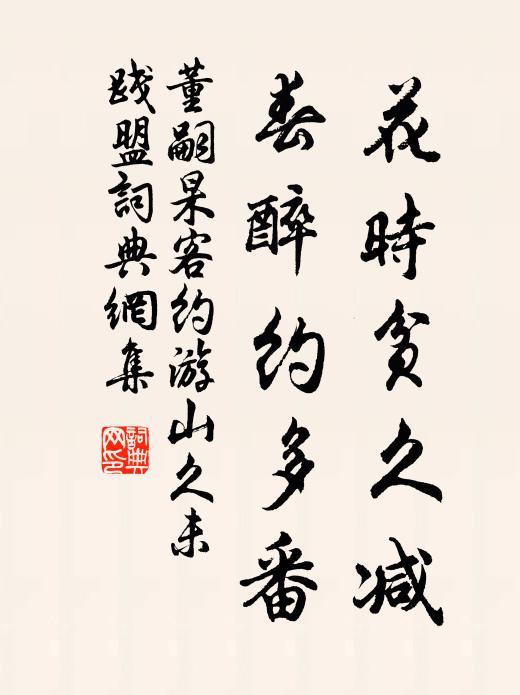 花時貧久减
春醉約多番
董嗣杲客約游山久未
踐盟詞典網集
詞典
网印